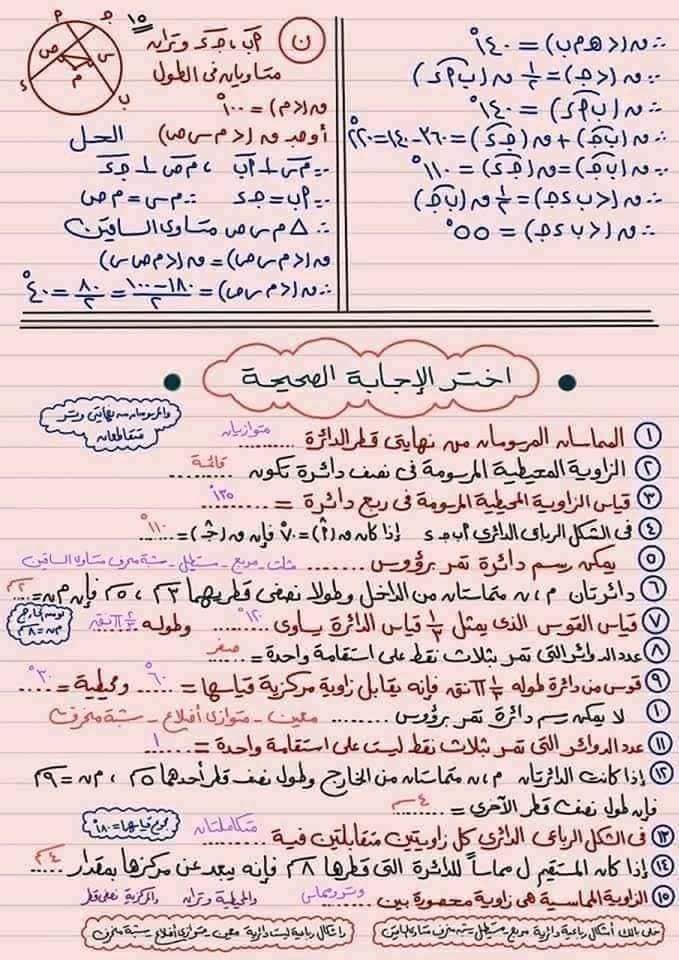 ∴ ق(<هـ م ب) = ١٤٠°
∴ ق(<جـ) = ١/٢ ق(ب أ د)
∴ ق(ب أ د) = ١٤٠°
∴ ق(ب جـ) + ق(جـ د) = ٣٦٠ - ١٤٠ = ٢٢٠°
∴ ق(ب جـ) = ق(جـ د) = ١١٠°
∴ ق(<ب د جـ) = ١/٢ ق(ب جـ)
∴ ق(<ب د جـ) = ٥٥°
ن
١٥
أب ، جـ د وتران
متساويان فى الطول
ق(<م) = ١٠٠°
أوجد ق(<م س ص)
الحل
∵ م س ⊥ أب ، م ص ⊥ جـ د
∵ أب = جـ د ∴ م س = م ص
∴ △ م س ص متساوى الساقين
ق(<م س ص) = ق(<م ص س)
∴ ق(<م س ص) = (١٨٠ - ١٠٠)/٢ = ٨٠/٢ = ٤٠°
أ جـ ص س م د ب
اختر الإجابة الصحيحة
والمرسومان من نهايتى وتر
متقاطعان
١ المماسان المرسومان من نهايتى قطر الدائرة متوازيان
٢ الزاوية المحيطية المرسومة فى نصف دائرة تكون قائمة
٣ قياس الزاوية المحيطية المرسومة فى ربع دائرة = ١٣٥°
٤ فى الشكل الرباعى الدائرى أ ب جـ د إذا كان ق(أ) = ٧٠° فإن ق(جـ) = ١١٠°
٥ يمكن رسم دائرة تمر برؤوس مثلث - مربع - مستطيل - شبه منحرف متساوى الساقين
٦ دائرتان م ، ن متماستان من الداخل وطولا نصفى قطريهما ٣سم ، ٥سم فإن م ن = ٢سم
٧ قياس القوس الذى يمثل ١/٣ قياس الدائرة يساوى ١٢٠° وطوله ٢/٣ π نق
لو من الخارج
م ن = ٨سم
٨ عدد الدوائر التى تمر بثلاث نقط على استقامة واحدة = صفر
٩ قوس من دائرة طوله ١/٣ π نق فإنه يقابل زاوية مركزية قياسها = ٦٠° ومحيطية = ٣٠°
١٠ لا يمكن رسم دائرة تمر برؤوس معين - متوازى أضلاع - شبة منحرف
١١ عدد الدوائر التى تمر بثلاث نقط ليست على استقامة واحدة = ١
١٢ إذا كانت الدائرتان م ، ن متماستان من الخارج وطول نصف قطر أحدهما ٥سم ، م ن = ٩سم
فإن طول نصف قطر الآخرى = ٤سم
١٣ فى الشكل الرباعى الدائرى كل زاويتين متقابلتين فية متكاملتان
مجموع قياسها = ١٨٠°
١٤ إذا كان المستقيم ل مماساً للدائرة التى قطرها ٨سم فإنه يبعد عن مركزها بمقدار ٤سم
١٥ الزاوية المماسية هى زاوية محصورة بين وتر ومماس والمحيطية وتران والمركزية نصفى قطر
خلى بالك أشكال رباعية دائرية مربع - مستطيل - شبه منحرف متساوى الساقين
وأشكال رباعية ليست دائرية معين - متوازى أضلاع - شبة منحرف